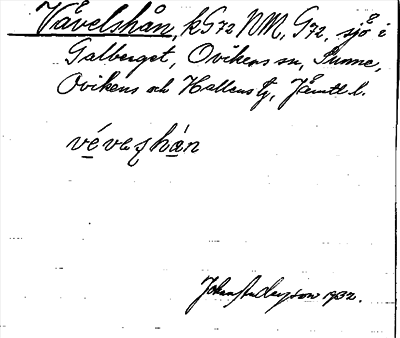 Våvelshån, kG72 NM, G72, sjö i
Galberget, Ovikens sn, Sunne,
Ovikens och Hallens tg, Jämtl. l.
vével̥shån
Johan Anderson 1932.